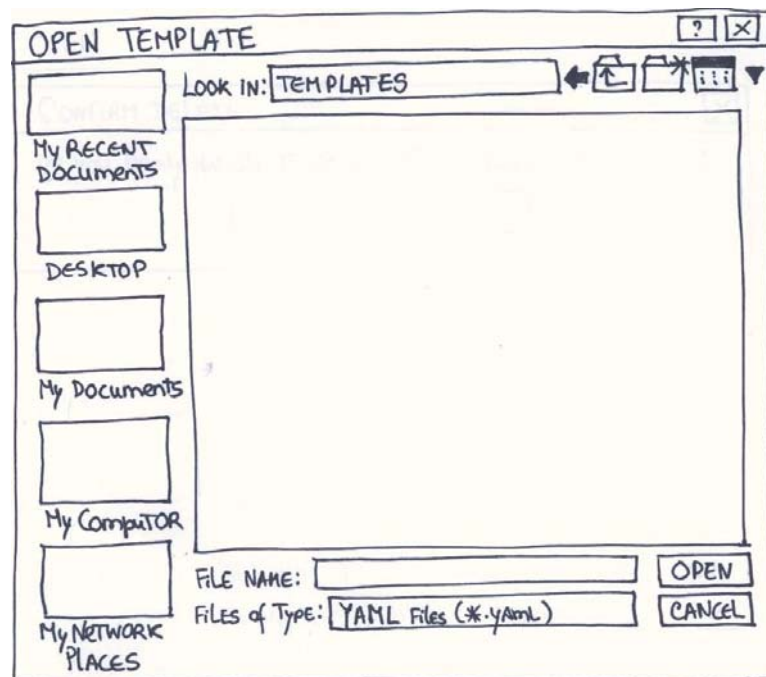 OPEN TEMPLATE
? X
LOOK IN: TEMPLATES
My RECENT
DOCUMENTS
DESKTOP
My DOCUMENTS
My COMPUTOR
My NETWORK
PLACES
FILE NAME:
OPEN
FILES of TYPE: YAML FILES (*.yAML)
CANCEL